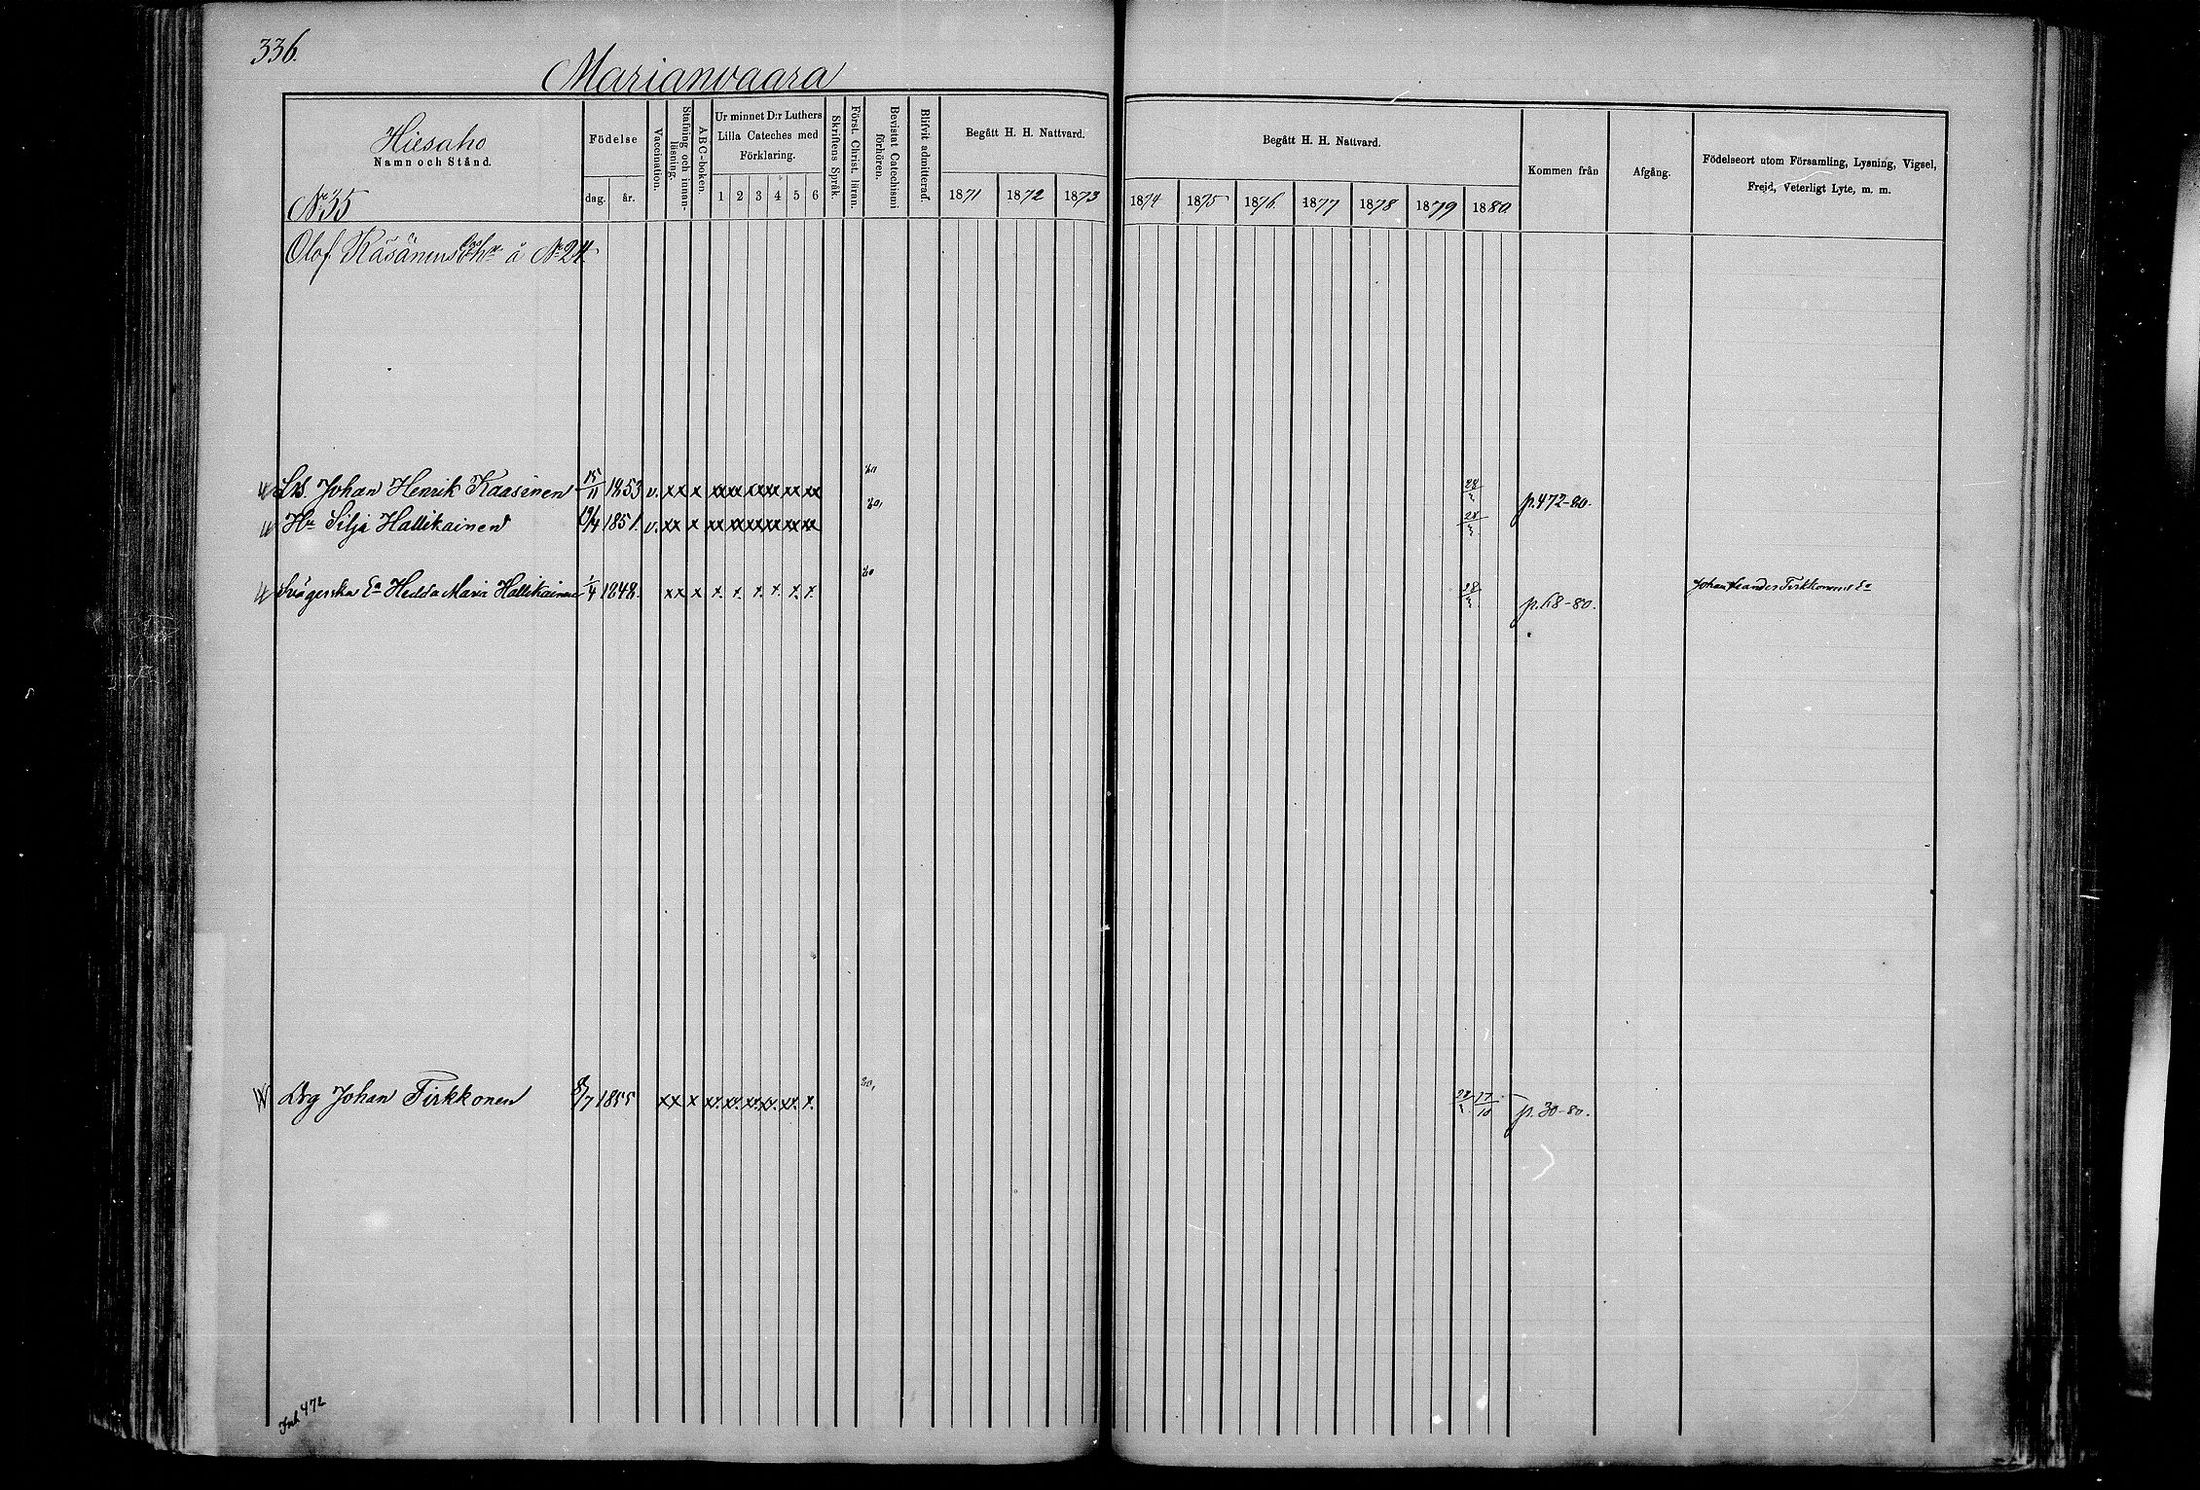 336.
Marianvaara
Hiesaho
Namn och Stånd.
No 35
Födelse
dag. år.
Vaccination.
Stafning och innan-läsning.
ABC-boken.
Ur minnet D:r Luthers
Lilla Cateches med
Förklaring.
1 2 3 4 5 6
Skriftens Språk.
Först. Christ. läran.
Bevistat Catechismi förhören.
Blifvit admitterad.
Begått H. H. Nattvard.
1871 1872 1873
Begått H. H. Nattvard.
1874 1875 1876. 1877 1878 1879 1880.
Kommen från
Afgång.
Födelseort utom Församling, Lysning, Vigsel,
Frejd, Veterligt Lyte, m. m.
Olof Räsänens å No 24
Johan Henrik Kaasinen 15/11 1853 v. xx x xx xx xx xx xx xx 80 p. 472-80.
Hu Silja Hallikainen 19/4 1851. v. xx x xx xx xx xx xx xx 80. p. 472-80.
Svägerska Ea Hedda Maria Hallikainen 1/4 1848. xx x x. x. x. x. x. x. 80 28 p. 68-80. Johan Leander Tirkkonens Ea
Drg Johan Tirkkonen 8/7 1855 xx x xx. xx. xx. xx. xx. x. 80. 17/10 p. 30-80.
Inh 472